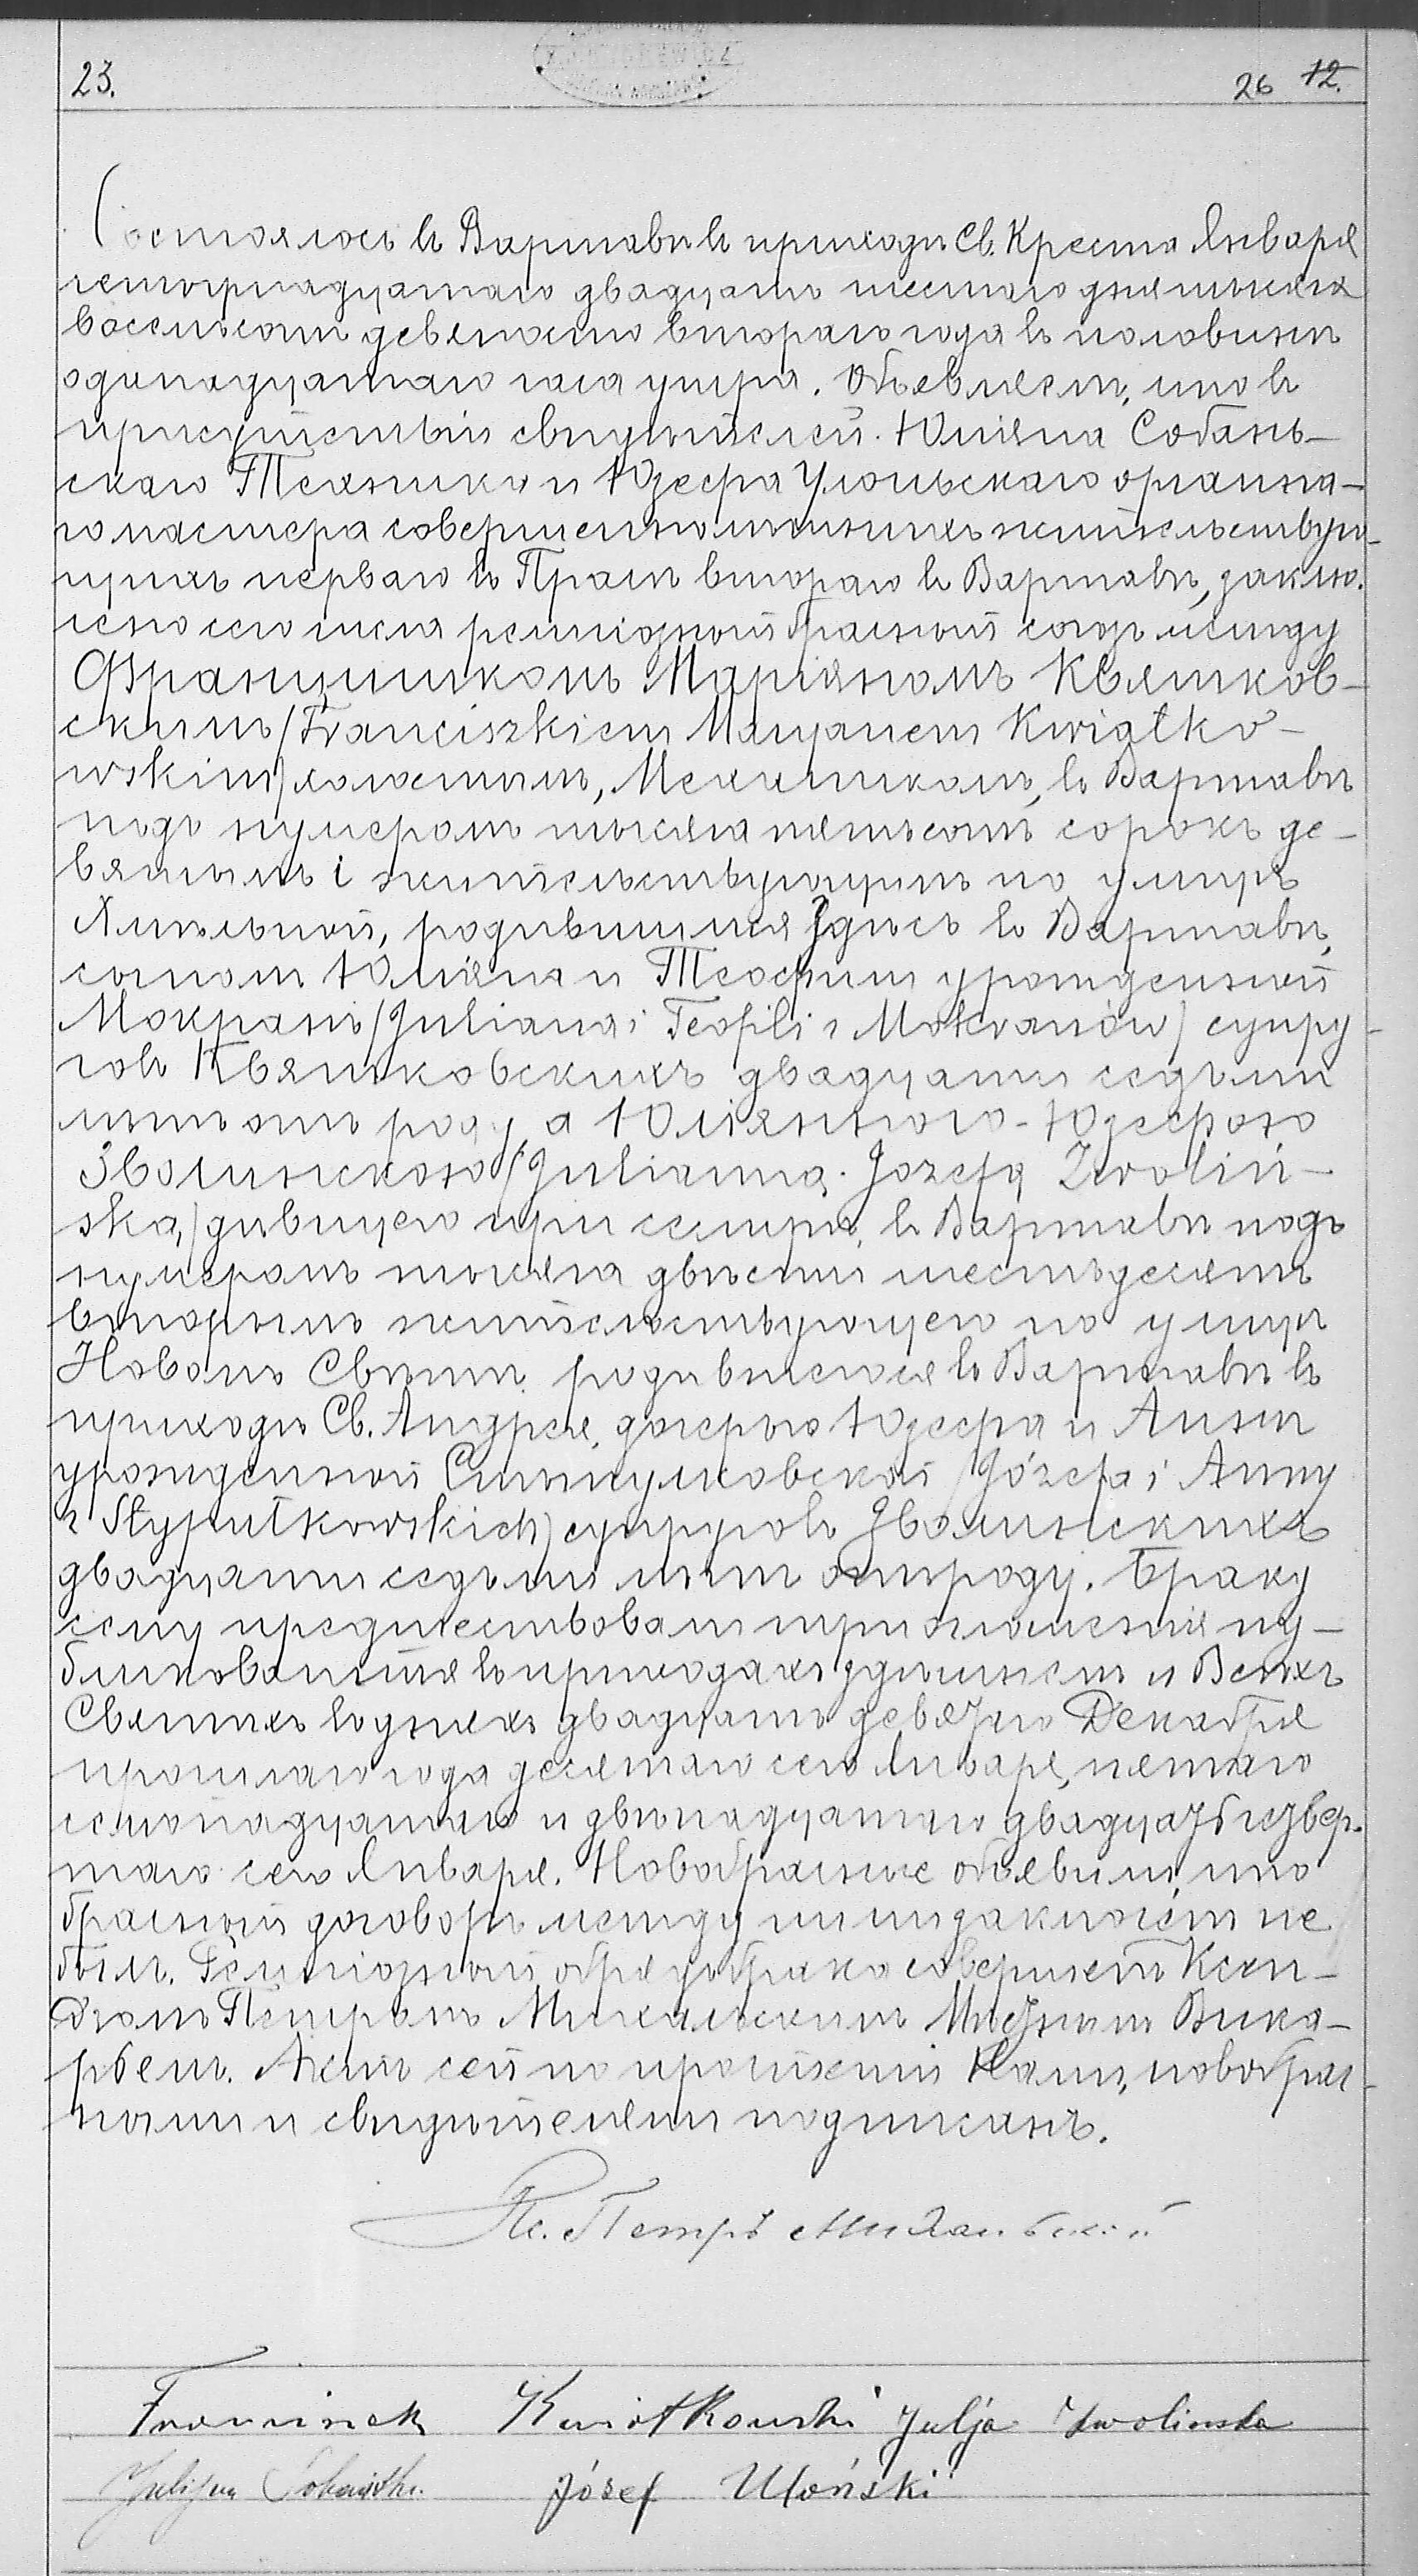 23.
26 12.
Состоялось въ Варшавѣ въ приходѣ Св. Креста Января
четырнадцатаго двадцать шестаго дня тысяча
восемьсотъ девяносто втораго года въ половинѣ
одинадцатаго часа утра. Объявляемъ, что въ
присутствіи свидѣтелей. Юліяна Собань-
скаго Техника и Юзефа Улоньскаго органна-
го мастера совершеннолѣтнихъ жительствую-
щихъ перваго въ Прагѣ втораго въ Варшавѣ, заклю-
чено сего числа религіозный брачный союзъ между
Францишкомъ Маріяномъ Квятков-
скимъ /Franciszkiem Maryanem Kwiatko-
wskim/ холостымъ, Механикомъ, въ Варшавѣ
подъ нумеромъ тысяча пятьсотъ сорокъ де-
вятымъ i жительствующимъ по улицѣ
Хмѣльной, родившимся здѣсь въ Варшавѣ,
сыномъ Юліяна и Теофили урожденной
Мокранъ /Juliana i Teofili z Mokranów/ супру-
говъ Квятковскихъ двадцати седьми
лѣтъ отъ роду, а Юліянною-Юзефою
Зволинскою /Julianną-Jozefą Zwoliń-
ską,/ дѣвицею при сестрѣ, въ Варшавѣ подъ
нумеромъ тысяча двѣсти шестьдесятъ
вторымъ жительствующею по улицѣ
Новомъ Свѣтѣ, родившеюся въ Варшавѣ въ
приходѣ Св. Андрея, дочерью Юзефа и Анны
урожденной Стыпулковской /Józefa i Anny
z Stypułkowskich/ супруговъ Зволинскихъ
двадцати седьми лѣтъ отъ роду. Браку
сему предшествовали три оглашенія пу-
бликованныя въ приходахъ здѣшнемъ и Всѣхъ
Святыхъ въ дняхъ двадцать девятаго Декабря
прошлаго года десятаго сего Января, пятаго
семнадцатаго и двѣнадцатаго двадцать четвер-
таго сего Января. Новобрачные объявили, что
брачный договоръ между ними заключенъ не
былъ. Религіозный обрядъ брака совершенъ Ксен-
дзомъ Петромъ Михальскимъ Мѣстнымъ Вика-
ріемъ. Актъ сей по прочтеніи Нами, новобрач-
ными и свидѣтелями подписанъ.
Кс. Петръ Михальскій
Franciszek Kwiatkowski Julja Zwolinska
Juljan Sobański Józef Uloński